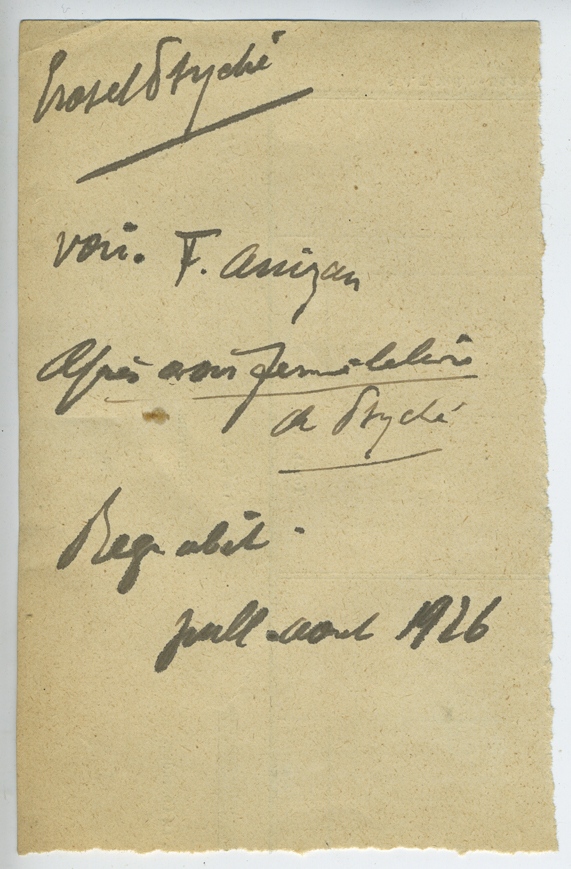 Eros et Psyché
voir. F. Anizan
Après avoir fermé le livre
de Psyché
Regnabit.
juill-aout 1926